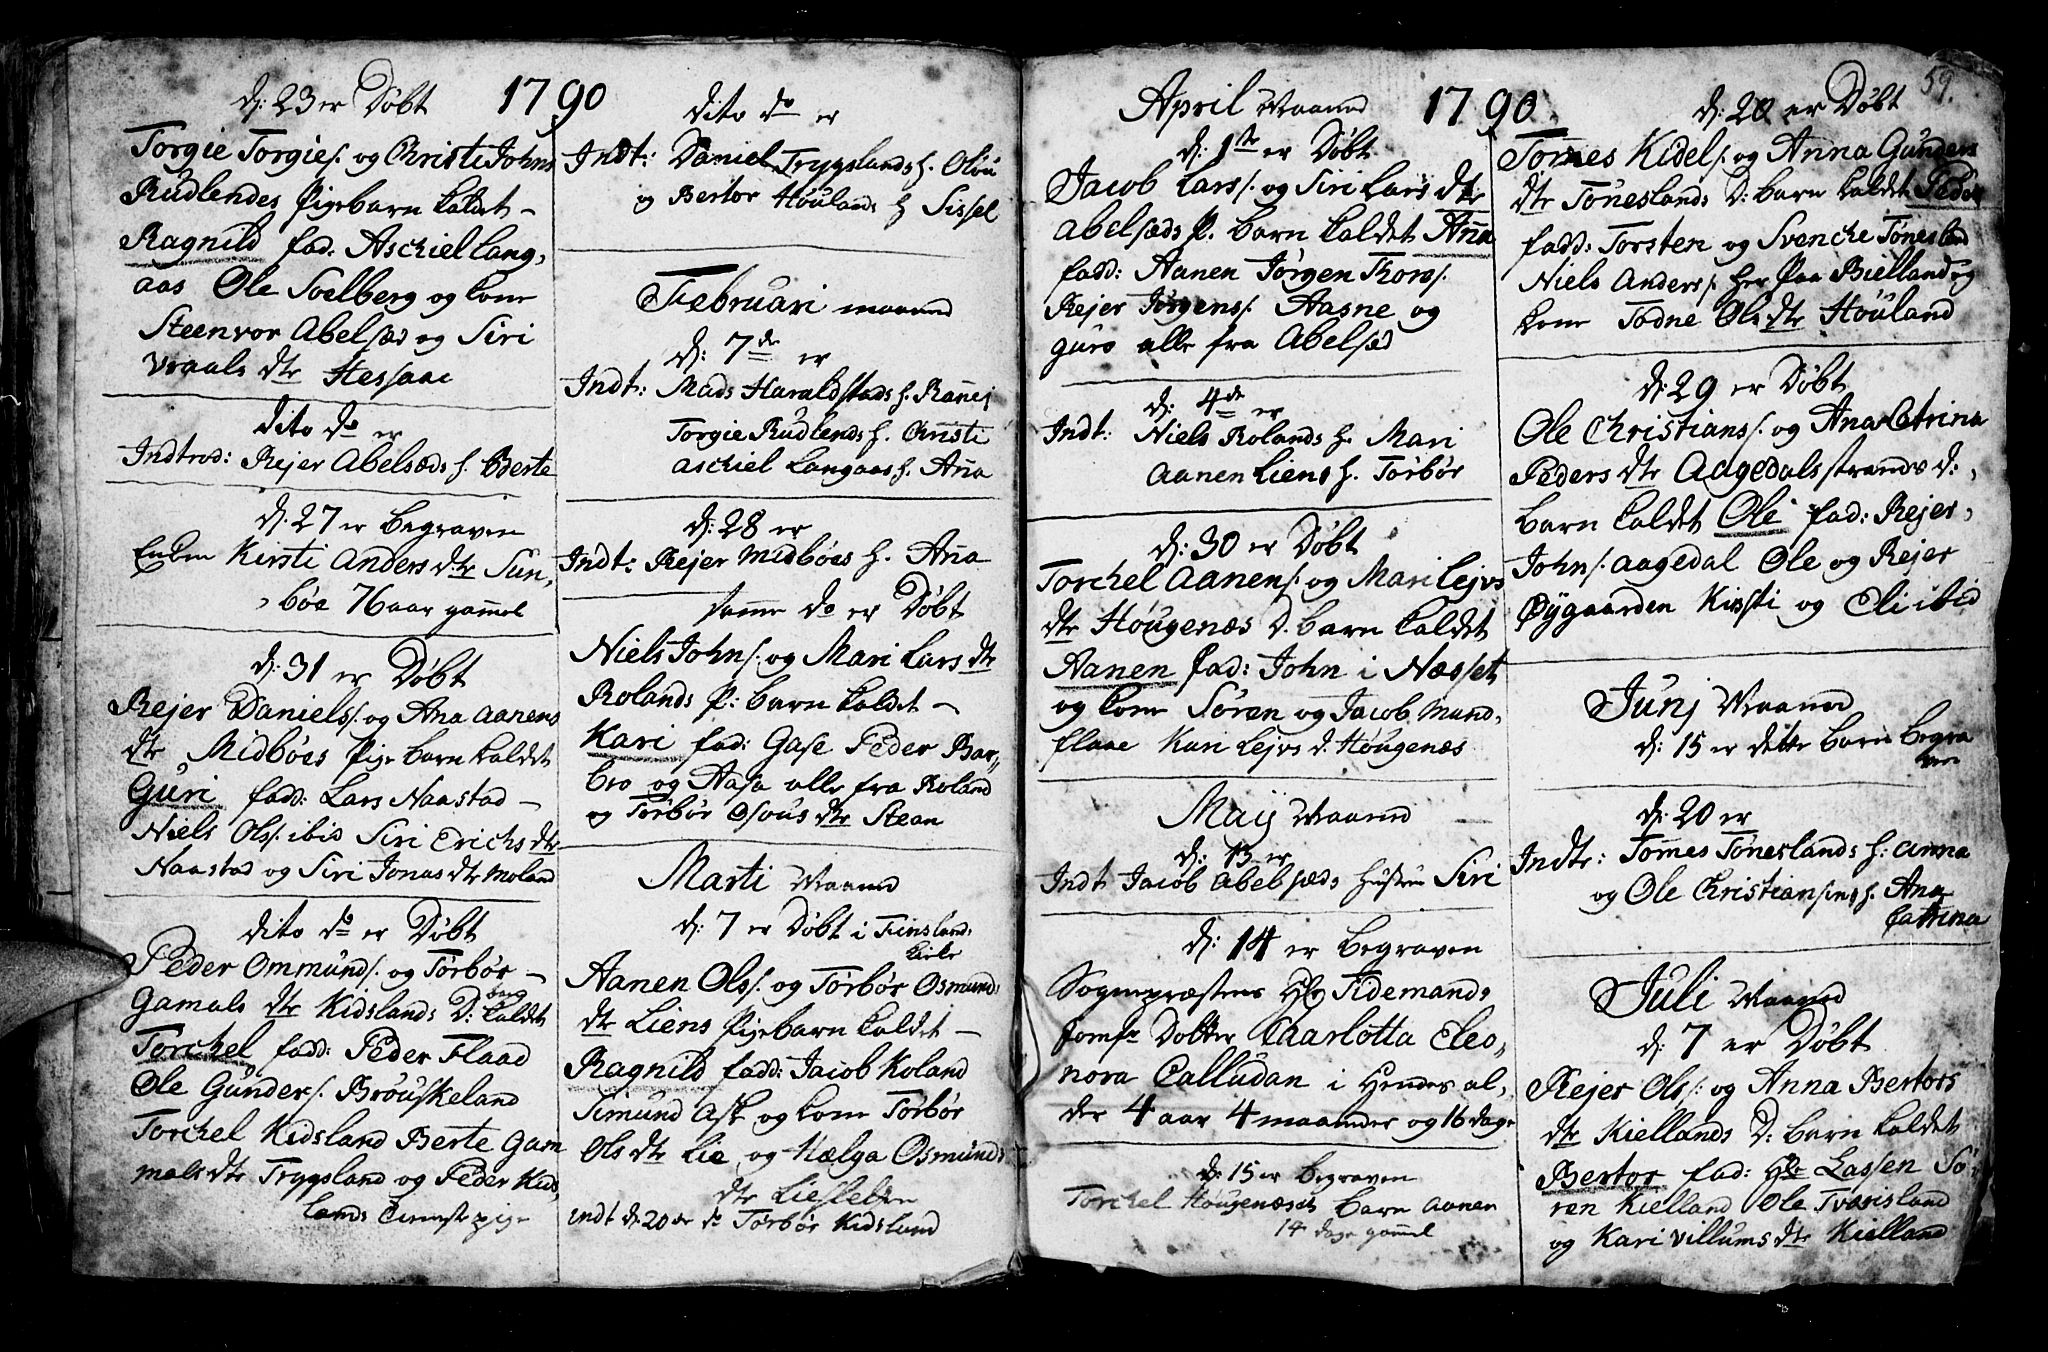 1790
d: 23 er Døbt
Torgie Torgies. og Christi Johns
Rudlendes Pigebarn kaldet –
Ragnild fad: Aschiel Lang,
aas Ole Soelberg og kone
Steenvor Abelsæd og Siri
Vraals dtr Hessaae
dito do er
Indtrod: Rejer Abelsæds h. Berte
d. 27 er begraven
Enken Kirsti Anders dtr Sun,
bøe 76 aar gammel
d: 31 er Døbt
Rejer Daniels. og Ana Aanens
dtr Midbøes Pige barn kaldet
Guri fadd: Lars Naastad –
Niels Ols. ibid Siri Erichs dtr
Naastad og Siri Jonas dtr Moland
dito do er Døbt
Peder Ommunds. og Torbør –
Gamals dtr Kidslands D: barn kaldet
Torchel fadd: Peder Flaad
Ole Gunders. Brøuskeland
Torchel Kidsland Berte Gam
mals dtr Trygsland og Peder Kids,
lands tienistepige
dito do er
Indt: Daniel Trygslands h. Olou
og Bertor Høulands h Sissel
Februari maaned
d: 7de er
Indt: Mads Haraldstads h. Rannei
Torgie Rudlends h. Christi
Aschiel Langaas h. Ana
d: 28 er
Indt: Rejer Midbøes h. Ana
samme do er Døbt
Niels Johns. og Mari Lars dtr
Rolands P: barn kaldet –
Kari fad: Gase Peder Bar-
bro og Aasa alle fra Roland
og Torbør Osous dtr Stean
Marti Maaned
d: 7 er Døbt i Finslands
Kirke
Aanen Ols. og Torbør Osmunds
dtr Liens Pigebarn kaldet –
Ragnild fadd: Jacob Roland
Simund Ask og kone Torbør
Ols dtr Lie og Hælga Osmunds
dtr Liesleten
Indt d: 20 er do Torbør Kidsland
59.
1790.
April Maaned
d: 1ste er Døbt
Jacob Lars. og Siri Lars dtr
Abelsæds P. barn kaldet Ana
fadd: Aanen Jørgen Thors.
Rejer Jørgens. Aasne og
guro alle fra Abelsæd
d: 4de er
Indt: Niels Rolands h. Mari
Aanen Liens h. Torbør
d: 30 er Døbt
Torchel Aanens. og Mari Lejvs
dtr Høugenæs D. barn kaldet
Aanen fad: John i Næsset
og kone Søren og Jacob Mand,
flaae Kari Lejvs d. Høugenæs
Maij Maaned
d: 13 er
Indt Jacob Abelsæds Hustrue Siri
d: 14 er begraven
Sognepræstens Hr Tidemands
Jomfr Dotter Charlotta Eleo,
nora Calludan i Hendes al,
der 4 aar 4 maaneder og 16 dage
d: 15 er begraven
Torchel Høugenæses barn Aanen
14 dage gammel
d: 20 er Døbt
Tomes Kidels. og Anna Gunders
dtr Tøneslands D: barn kaldet Peder
fadd: Torsten og Svenche Tønesland
Niels Anders. Her paa Bielland og
kone Todne Ols dtr Høuland
d: 29 er Døbt
Ole Christians. og Ana Catrina
Peders dtr Aagedals strands D:
barn kaldet Ole fad: Rejer
Johns. Aagedal Ole og Rejer
Øygaarden Kirsti og Eli ibid
Junj Maaned
d: 15 er dette barn begra
ven
d: 20 er
Indtr: Tomes Tøneslands h: Anna
og Ole Christiansens h. Ana
Cattrina
Juli Maaned
d: 7 er Døbt
Rejer Ols. og Anna Bertors
dtr Kiellands D: barn kaldet
Bertor fad: Hr Lassen Sø-
ren Kielland Ole Tvarisland
og Kari Villums dtr Kielland